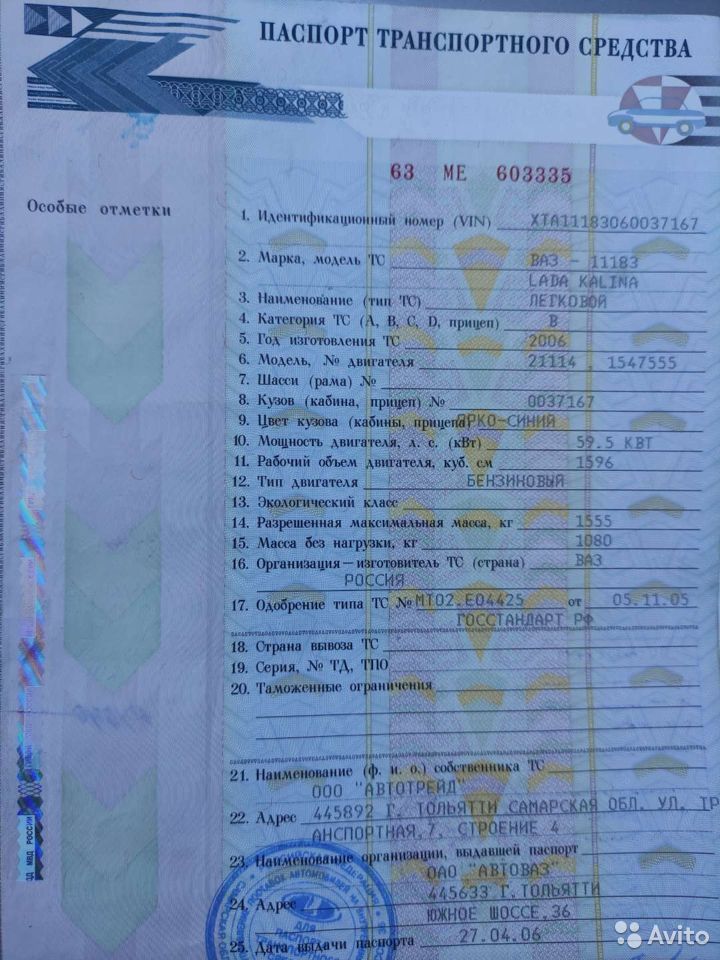 ПАСПОРТ ТРАНСПОРТНОГО СРЕДСТВА
63 МЕ 603335
Особые отметки
1. Идентификационный номер (VIN) XTA11183060037167
2. Марка, модель ТС ВАЗ - 11183
LADA KALINA
3. Наименование (тип ТС) ЛЕГКОВОЙ
4. Категория ТС (А, В, С, D, прицеп) В
5. Год изготовления ТС 2006
6. Модель, № двигателя 21114 , 1547555
7. Шасси (рама) №
8. Кузов (кабина, прицеп) № 0037167
9. Цвет кузова (кабины, прицепа) ЯРКО-СИНИЙ
10. Мощность двигателя, л. с. (кВт) 59.5 КВТ
11. Рабочий объем двигателя, куб. см 1596
12. Тип двигателя БЕНЗИНОВЫЙ
13. Экологический класс
14. Разрешенная максимальная масса, кг 1555
15. Масса без нагрузки, кг 1080
16. Организация—изготовитель ТС (страна) ВАЗ
РОССИЯ
17. Одобрение типа ТС № МТ02.Е04425 от 05.11.05
ГОССТАНДАРТ РФ
18. Страна вывоза ТС
19. Серия, № ТД, ТПО
20. Таможенные ограничения
21. Наименование (ф. и. о.) собственника ТС
ООО "АВТОТРЕЙД"
22. Адрес 445892 Г. ТОЛЬЯТТИ САМАРСКАЯ ОБЛ. УЛ. ТР
АНСПОРТНАЯ,7, СТРОЕНИЕ 4
23. Наименование организации, выдавшей паспорт
ОАО "АВТОВАЗ"
24. Адрес 445633 Г.ТОЛЬЯТТИ
ЮЖНОЕ ШОССЕ,36
25. Дата выдачи паспорта 27.04.06
МВД РОССИИ
ДЛЯ
Avito